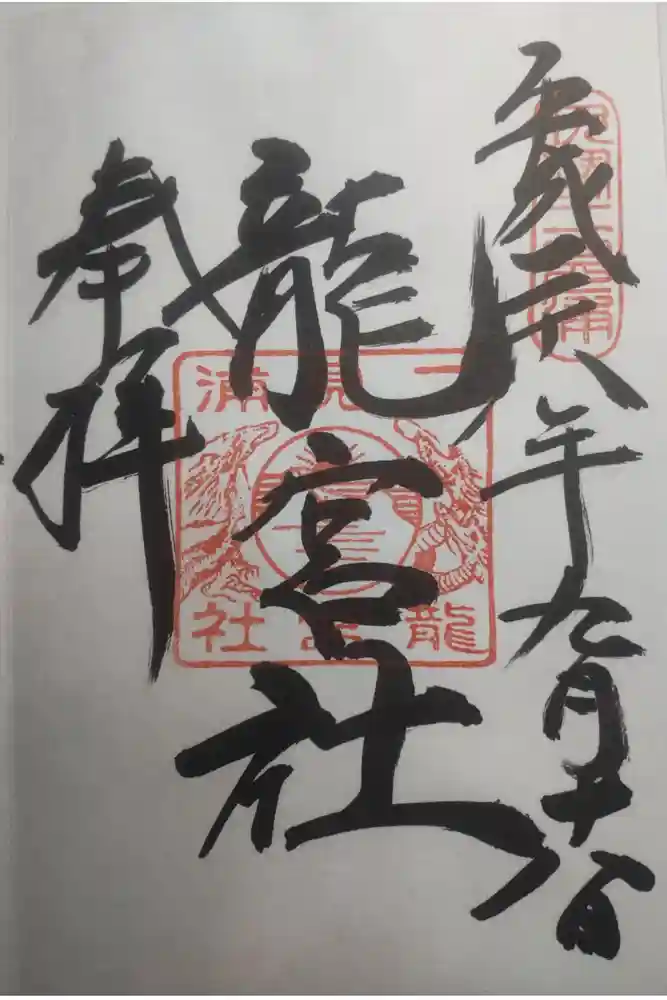 平成二十八年九月十八日
龍宮社
奉拝
二見浦
二見浦
龍宮社